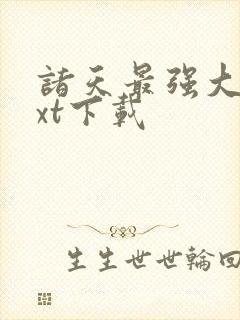 諸天最强大
xt下載
生生世世輪回